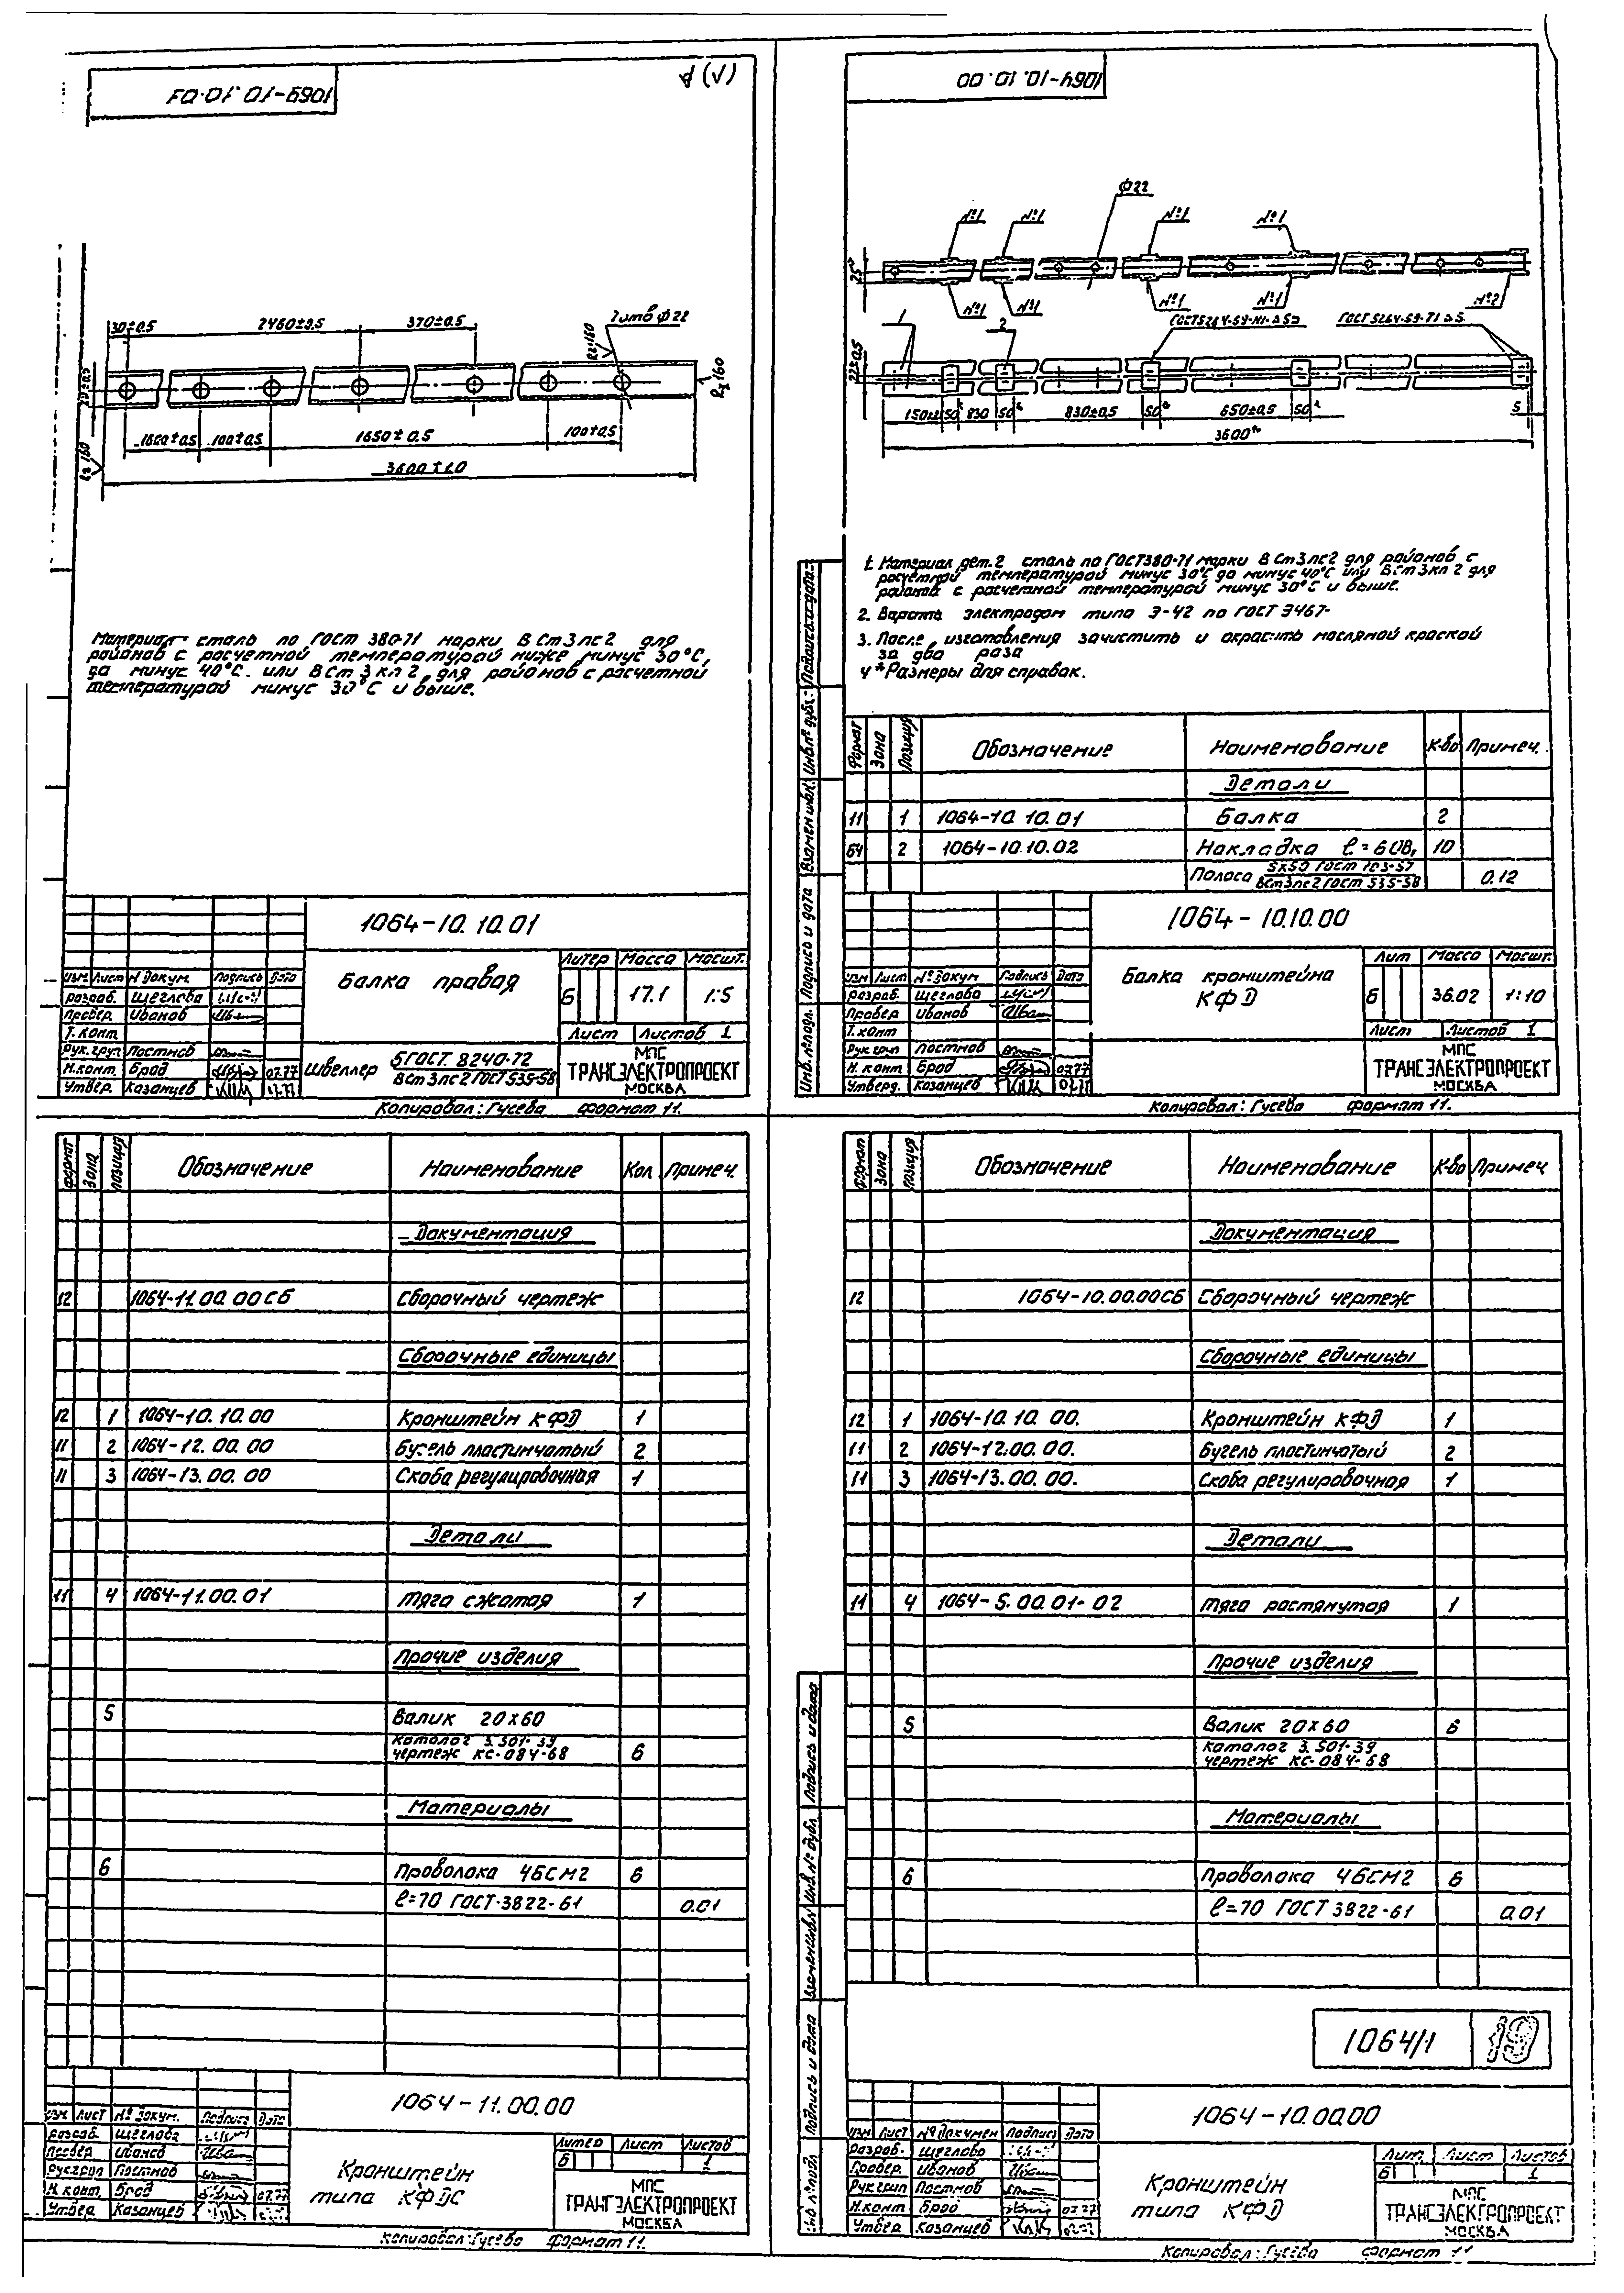 1064-10.10.01
√(√)
30±0,5
2460±0,5
370±0,5
7 отв Ф22
Rz160
Rz160
Rz160
1600±0,5
100±0,5
1650±0,5
100±0,5
3600±1.0
Материал- сталь по ГОСТ 380-71 марки ВСт3пс2 для
районов с расчетной температурой ниже минус 30°С,
до минус 40°С. или ВСт3кп2 для районов с расчетной
температурой минус 30°С и выше.
1064-10.10.01
Изм Лист N Докум. Подпись Дата
Разраб. Щеглова
Провер Иванов
Т. конт
Рук.груп Постнов
Н.конт. Брод 07.77
Утвер. Казанцев 07.77
Балка правая
Литер Масса Масшт.
Б 17.1 1:5
Лист Листов 1
Швеллер 5 ГОСТ 8240-72
ВСт3пс2 ГОСТ 535-58
МПС
ТРАНСЭЛЕКТРОПРОЕКТ
МОСКВА
Копировал: Гусева Формат 11.
1064-10.10.00
Ф22
№1 №1 №1 №1
25*
№1 №1 №1 №1 №2
1 2
22±0,5
50* 830 50* 830±0,5 50* 650±0,5 50* 5
3600*
1. Материал дет.2 сталь по ГОСТ380-71 марки ВСт3пс2 для районов с
расчетной температурой минус 30°С до минус 40°С или ВСт3кп2 для
районов с расчетной температурой минус 30°С и выше.
2. Варить электродом типа Э-42 по ГОСТ 9467-
3. После изготовления зачистить и окрасить масляной краской
за два раза
4 *Размеры для справок.
Формат Зона Позиция Обозначение Наименование К-во Примеч.
Детали
11 1 1064-10.10.01 Балка 2
БЧ 2 1064-10.10.02 Накладка 10
Полоса 5х50 ГОСТ 103-57
ВСт3пс2 ГОСТ 535-58 0.12
1064-10.10.00
Изм Лист №Докум Подпись Дата
Разраб. Щеглова
Провер Иванов
Т. конт
Рук груп Постнов
Н. конт Брод 07.77
Утверд. Казанцев 07.77
Балка кронштейна
КФД
Лит Масса Масшт.
Б 36.02 1:10
Лист Листов 1
МПС
ТРАНСЭЛЕКТРОПРОЕКТ
МОСКВА
Инв.№подл. Подпись и дата Взамен инв.№ Инв.№ дубл. Подпись и дата
Копировал: Гусева Формат 11.
Формат Зона Позиция Обозначение Наименование Кол. Примеч.
Документация
12 1064-11.00.00СБ Сборочный чертеж
Сборочные единицы
12 1 1064-10.10.00 Кронштейн КФД 1
11 2 1064-12.00.00 Бугель пластинчатый 2
11 3 1064-13.00.00 Скоба регулировочная 1
Детали
11 4 1064-11.00.01 Тяга сжатая 1
Прочие изделия
5 Валик 20х60
каталог 3.501-39
чертеж КС-084-68 6
Материалы
6 Проволока 4БСМ2 6
ℓ=70 ГОСТ-3822-61 0.01
1064-11.00.00
Изм Лист № докум. Подпись Дата
Разраб. Щеглова
Провер Иванов
Рук груп Постнов
Н конт. Брод 07.77
Утвер Казанцев
Кронштейн
типа КФДС
Литер Лист Листов
Б 1
МПС
ТРАНСЭЛЕКТРОПРОЕКТ
МОСКВА
Копировал: Гусева Формат 11.
Формат Зона Позиция Обозначение Наименование К-во Примеч
Документация
12 1064-10.00.00СБ Сборочный чертеж
Сборочные единицы
12 1 1064-10.10.00. Кронштейн КФД 1
11 2 1064-12.00.00. Бугель пластинчатый 2
11 3 1064-13.00.00. Скоба регулировочная 1
Детали
11 4 1064-5.00.01-02 Тяга растянутая 1
Прочие изделия
5 Валик 20х60 6
каталог 3.501-39
чертеж КС-084-68
Материалы
6 Проволока 4БСМ2 6
ℓ=70 ГОСТ 3822-61 0.01
1064/1 19
1064-10.00.00
Изм Лист № Докумен Подпись Дата
Разраб. Щеглова
Провер. Иванов
Рук груп Постнов
Н.конт Брод 07.77
Утвер Казанцев 07.77
Кронштейн
типа КФД
Лит. Лист Листов
Б 1
МПС
ТРАНСЭЛЕКТРОПРОЕКТ
МОСКВА
Инв.№ подл Подпись и дата Взамен инв.№ Инв.№ дубл Подпись и дата
Копировал: Гусева Формат 11